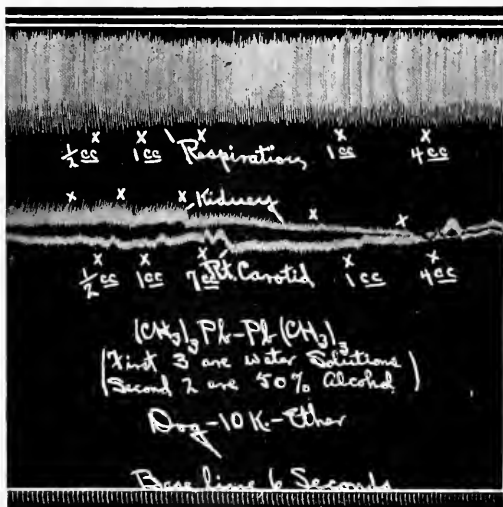 x x x x x
1/2 cc 1 cc Respiration 1 cc 4 cc
x x x Kidney x x
x x x x x
1/2 cc 1 cc 7 cc Rt. Carotid 1 cc 4 cc
(CH3)3 Pb-Pb (CH3)3
(First 3 are water Solutions
Second 2 are 50% Alcohol)
Dog-10 K-Ether
Base line 6 Seconds